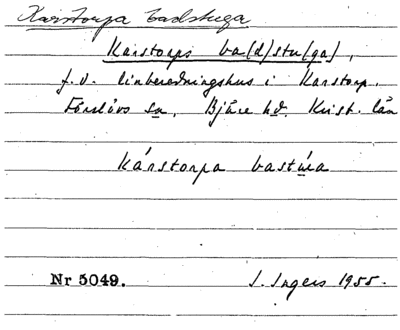 Karstorpa badstuga
Karstorps ba(d)stu(ga),
f.d. linberedningshus i Karstorp.
Förslövs sn, Bjäre hd. Krist. län
Kárstorpa bastúa
Nr 5049.
I. Ingers 1955.